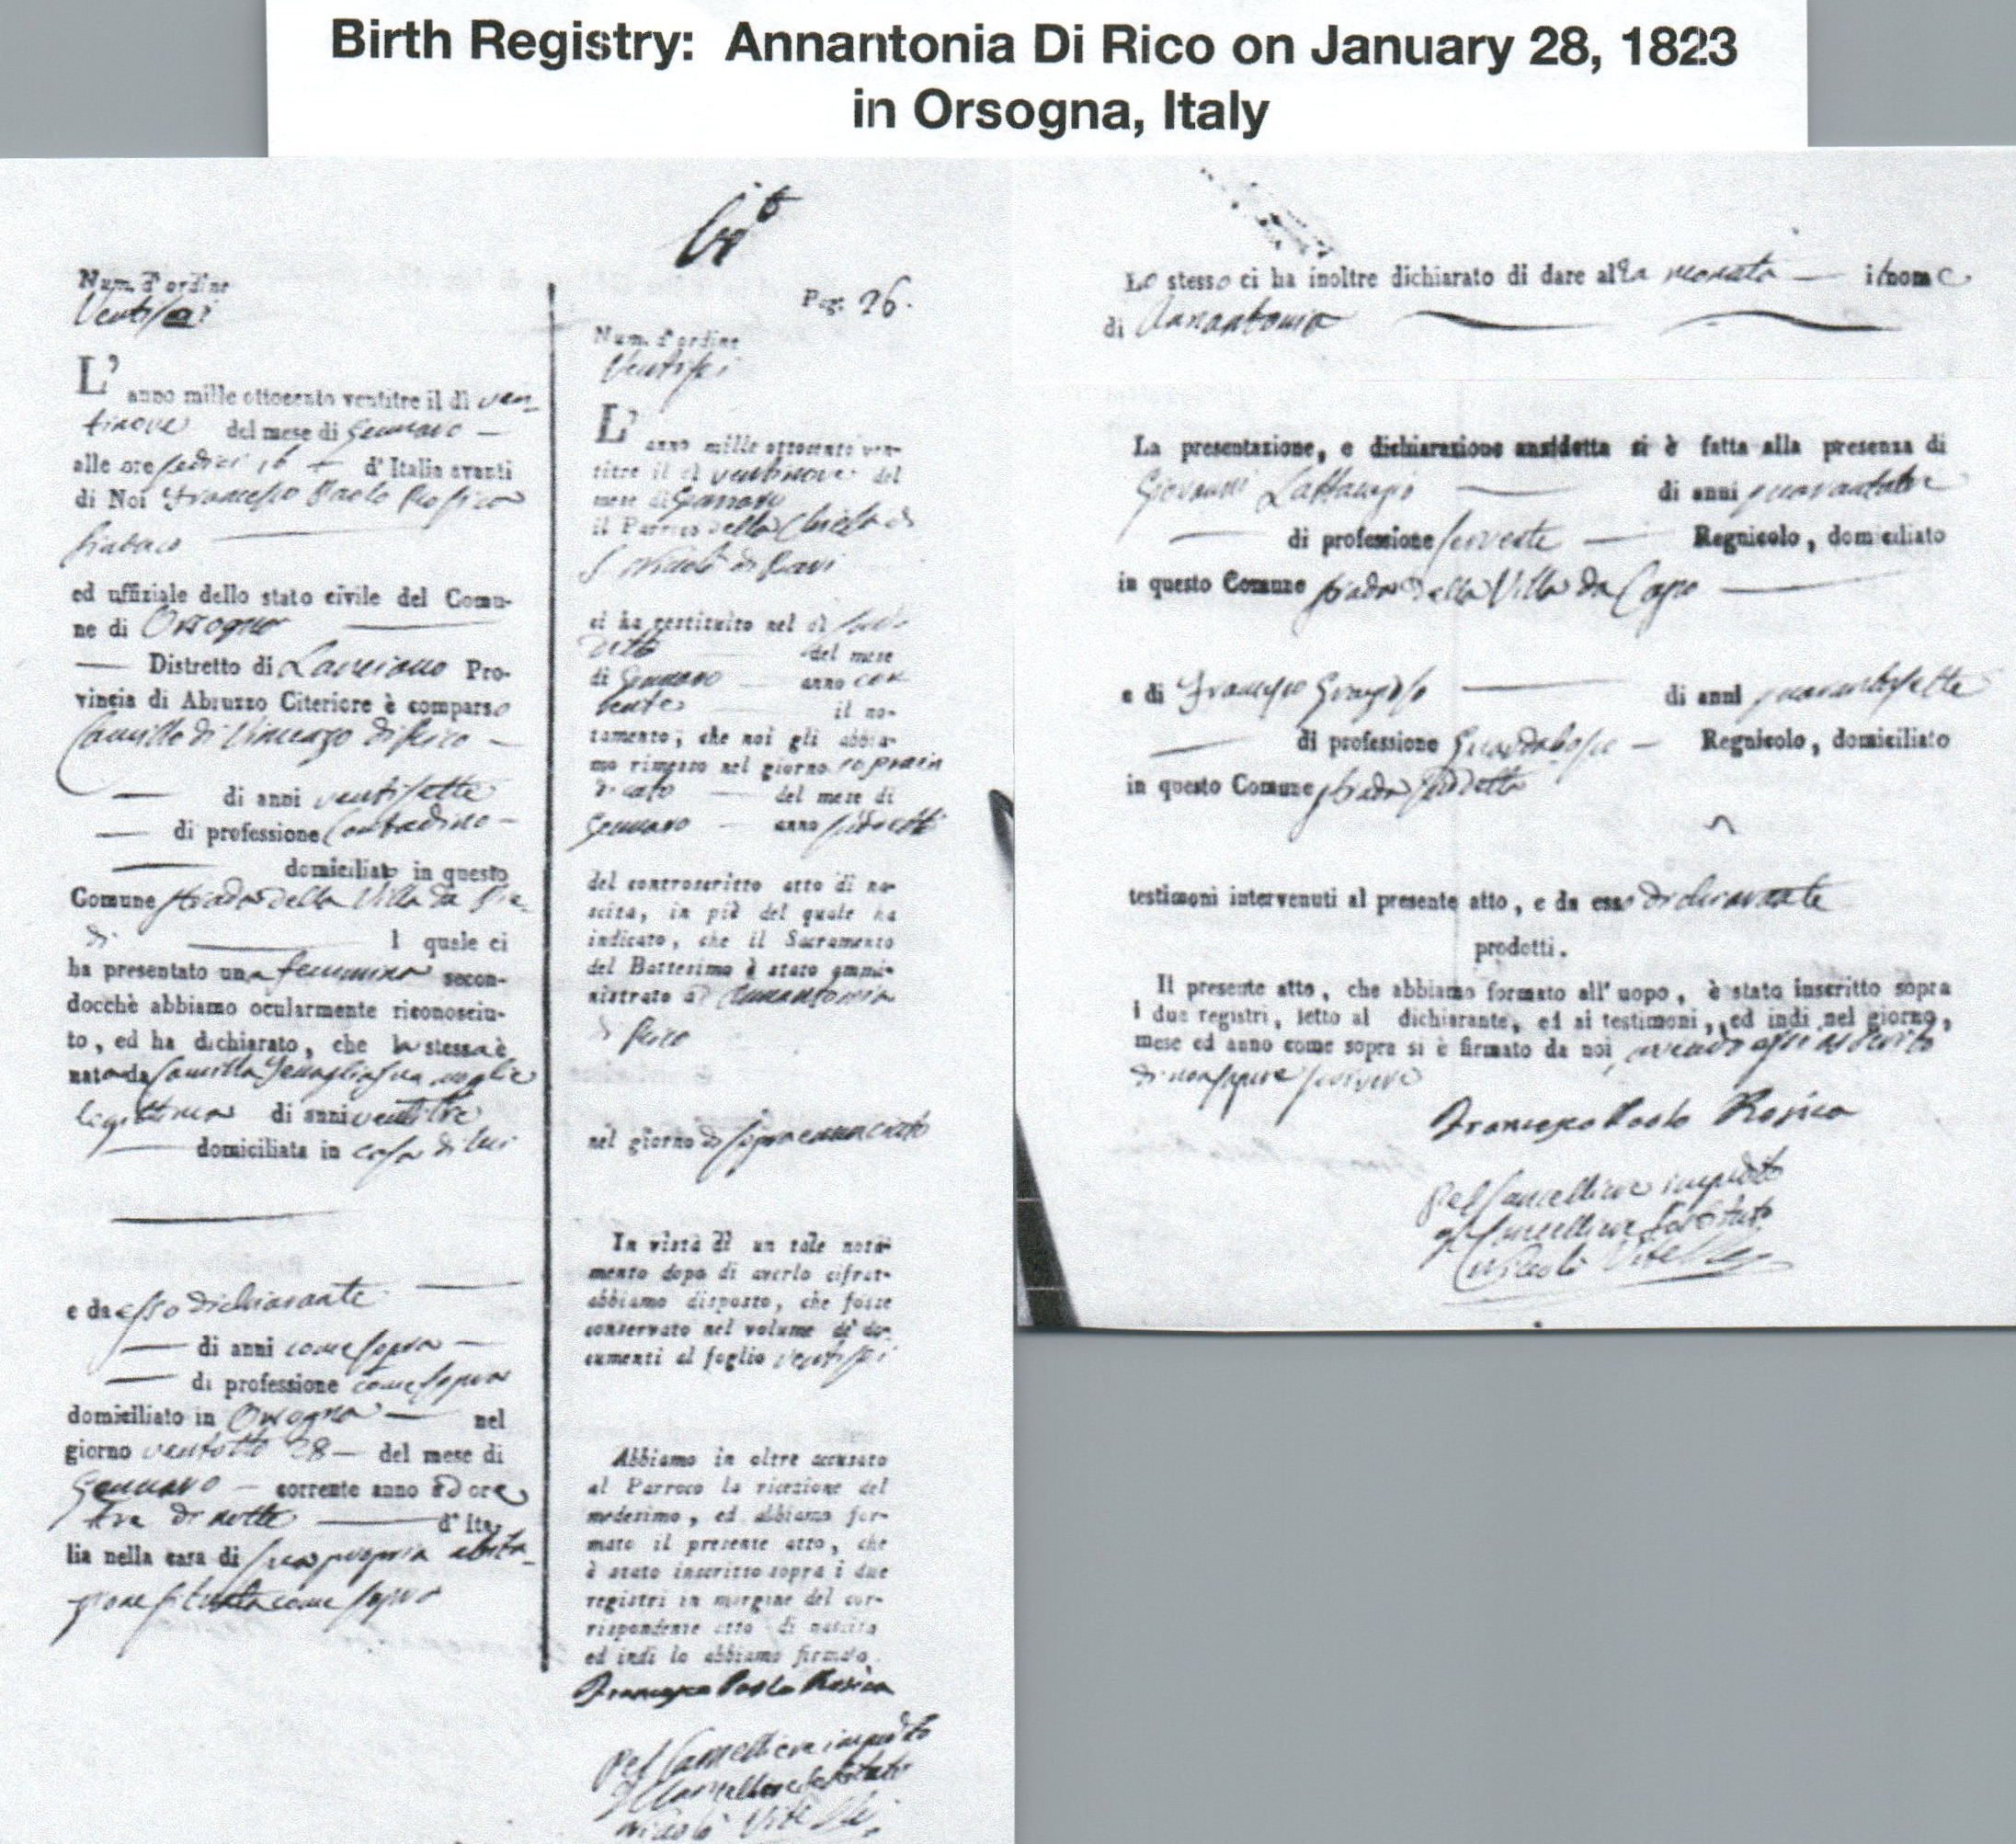 Birth Registry: Annantonia Di Rico on January 28, 1823
in Orsogna, Italy
Num. d'ordine
Ventisei
L'anno mille ottocento ventitre il dì ven-
tinove del mese di Gennaro
alle ore sedici 16 d'Italia avanti
di Noi Francesco Paolo Rosica
Sindaco
ed uffiziale dello stato civile del Comu-
ne di Orsogna
Distretto di Lanciano Pro-
vincia di Abruzzo Citeriore è comparso
Camillo di Vincenzo di Rico
di anni ventisette
di professione Contadino
domiciliato in questo
Comune strada della Villa da Pie-
di l quale ci
ha presentato una femmina secon-
docchè abbiamo ocularmente riconosciu-
to, ed ha dichiarato, che la stessa è
nata da Camilla Tenaglia sua moglie
legittima di anni ventitre
domiciliata in casa di lui
e da esso dichiarante
di anni come sopra
di professione come sopra
domiciliato in Orsogna nel
giorno ventotto 28 del mese di
Gennaro corrente anno ad ore
tre di notte d'Ita-
lia nella casa di sua propria abita-
zione situata come sopra
Pag. 26.
Num. d'ordine
Ventisei
L'anno mille ottocento ven-
titre il dì ventinove del
mese di Gennaro
il Parroco della Chiesa di
S. Nicolò di Bari
ci ha restituito nel dì sud-
detto del mese
di Gennaro anno cor-
rente il no-
tamento, che noi gli abbia-
mo rimesso nel giorno soprain
dicato del mese di
Gennaro anno sudetto
del controscritto atto di na-
scita, in piè del quale ha
indicato, che il Sacramento
del Battesimo è stato ammi-
nistrato ad Annantonia
di Rico
nel giorno sopraenunciato
In vista di un tale nota-
mento dopo di averlo cifrat-
abbiamo disposto, che fosse
conservato nel volume de' do-
cumenti al foglio ventisei
Abbiamo in oltre accusato
al Parroco la ricezione del
medesimo, ed abbiamo for-
mato il presente atto, che
è stato inscritto sopra i due
registri in margine del cor-
rispondente atto di nascita
ed indi lo abbiamo firmato.
Francesco Paolo Rosica
Pel Cancelliere impedito
Il Cancelliere sostituto
Nicolò Vitelli
Lo stesso ci ha inoltre dichiarato di dare alla neonata il nome
di Annantonia
La presentazione, e dichiarazione anzidetta si è fatta alla presenza di
Giovanni Lattanzio di anni
di professione Regnicolo, domiciliato
in questo Comune strada della Villa da Capo
e di Francesco di anni quarantasette
di professione Regnicolo, domiciliato
in questo Comune strada sudetta
testimoni intervenuti al presente atto, e da esso dichiarante
prodotti.
Il presente atto, che abbiamo formato all'uopo, è stato inscritto sopra
i due registri, letto al dichiarante, ed ai testimoni, ed indi nel giorno,
mese ed anno come sopra si è firmato da noi, avendo essi asserito
di non sapere scrivere
Francesco Paolo Rosica
Pel Cancelliere impedito
Il Cancelliere Sostituto
Nicolò Vitelli